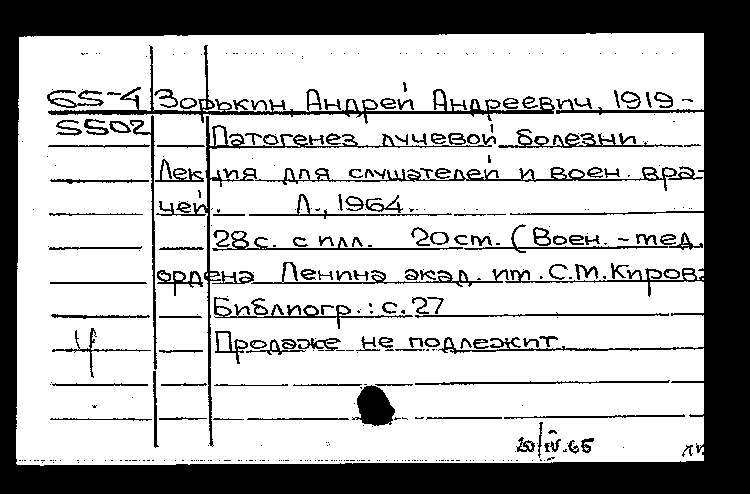 65-4 Зорькин, Андрей Андреевич, 1919-
5502 Патогенез лучевой болезни.
Лекция для слушателей и воен. вра-
чей. Л., 1964.
28 с. с илл. 20 cm. (Воен.-мед.
ордена Ленина акад. им. С.М.Кирова
Библиогр.: с. 27
Ч Продаже не подлежит.
20/IV.65